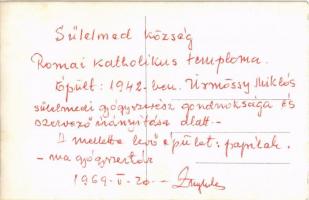 Sülelmed község
Romai katholikus temploma.
Épült: 1942-ben. Ürmössy Miklós
sülelmedi gyógyszerész gondnoksága és
szervező irányítása alatt.-
A mellette levő épület: paplak.
- ma gyógyszertár
1969. II. 20.-